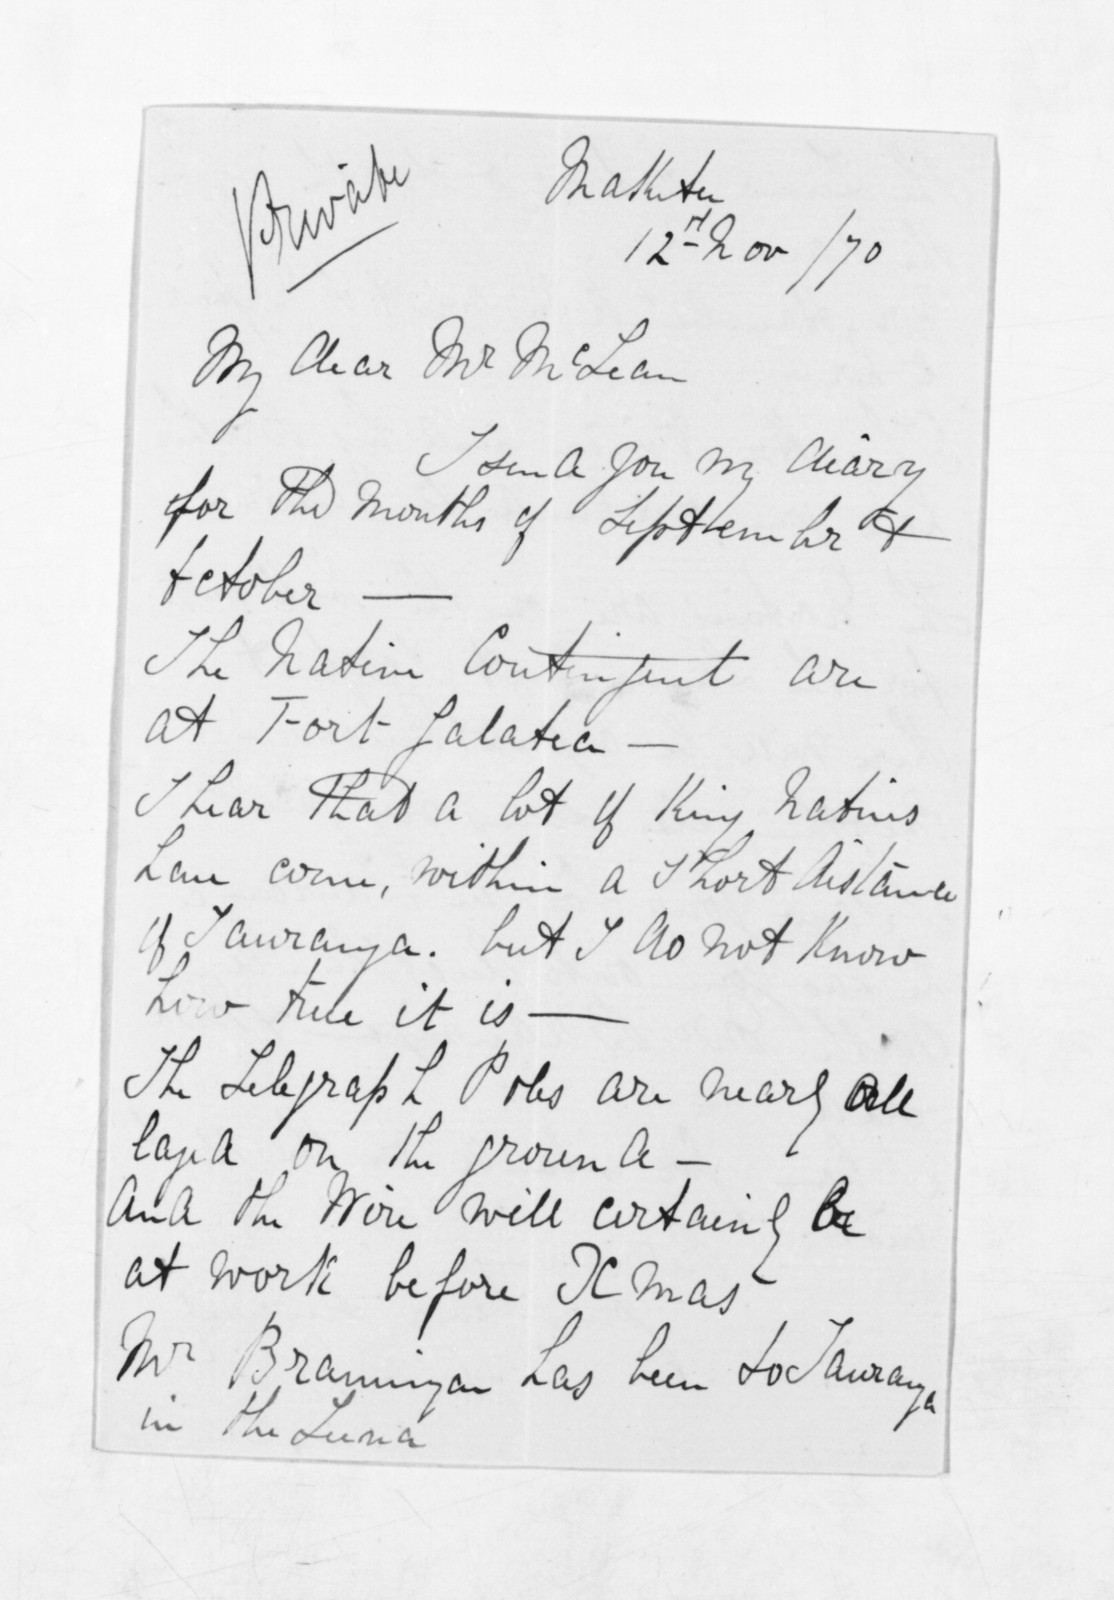 Private
Maketu
12th Nov /70
My dear Mr McLean
I send you my diary
for the months of September &
October —
The Native Contingent are
at Fort Galatea —
I hear that a lot of King Natives
have come, within a short distance
of Tauranga. but I do not know
how true it is —
The Telegraph Poles are nearly all
layed on the ground —
And the Wire will certainly be
at work before Xmas
Mr Brannigan has been to Tauranga
in the Luna